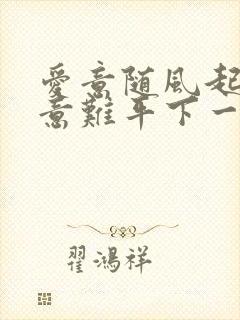 愛意随風起
意難平下一
翟鴻祥